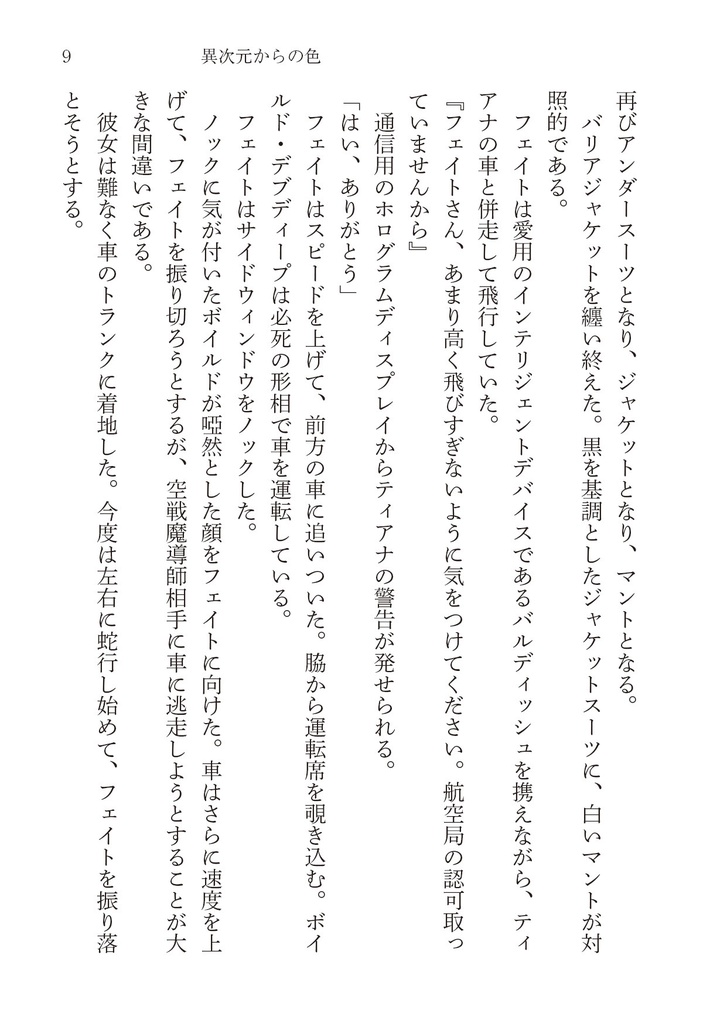 9
異次元からの色
再びアンダースーツとなり、ジャケットとなり、マントとなる。
バリアジャケットを纏い終えた。黒を基調としたジャケットスーツに、白いマントが対
照的である。
フェイトは愛用のインテリジェントデバイスであるバルディッシュを携えながら、ティ
アナの車と併走して飛行していた。
『フェイトさん、あまり高く飛びすぎないように気をつけてください。航空局の認可取っ
ていませんから』
通信用のホログラムディスプレイからティアナの警告が発せられる。
「はい、ありがとう」
フェイトはスピードを上げて、前方の車に追いついた。脇から運転席を覗き込む。ボイ
ルド・デブディープは必死の形相で車を運転している。
フェイトはサイドウィンドウをノックした。
ノックに気が付いたボイルドが啞然とした顔をフェイトに向けた。車はさらに速度を上
げて、フェイトを振り切ろうとするが、空戦魔導師相手に車に逃走しようとすることが大
きな間違いである。
彼女は難なく車のトランクに着地した。今度は左右に蛇行し始めて、フェイトを振り落
とそうとする。